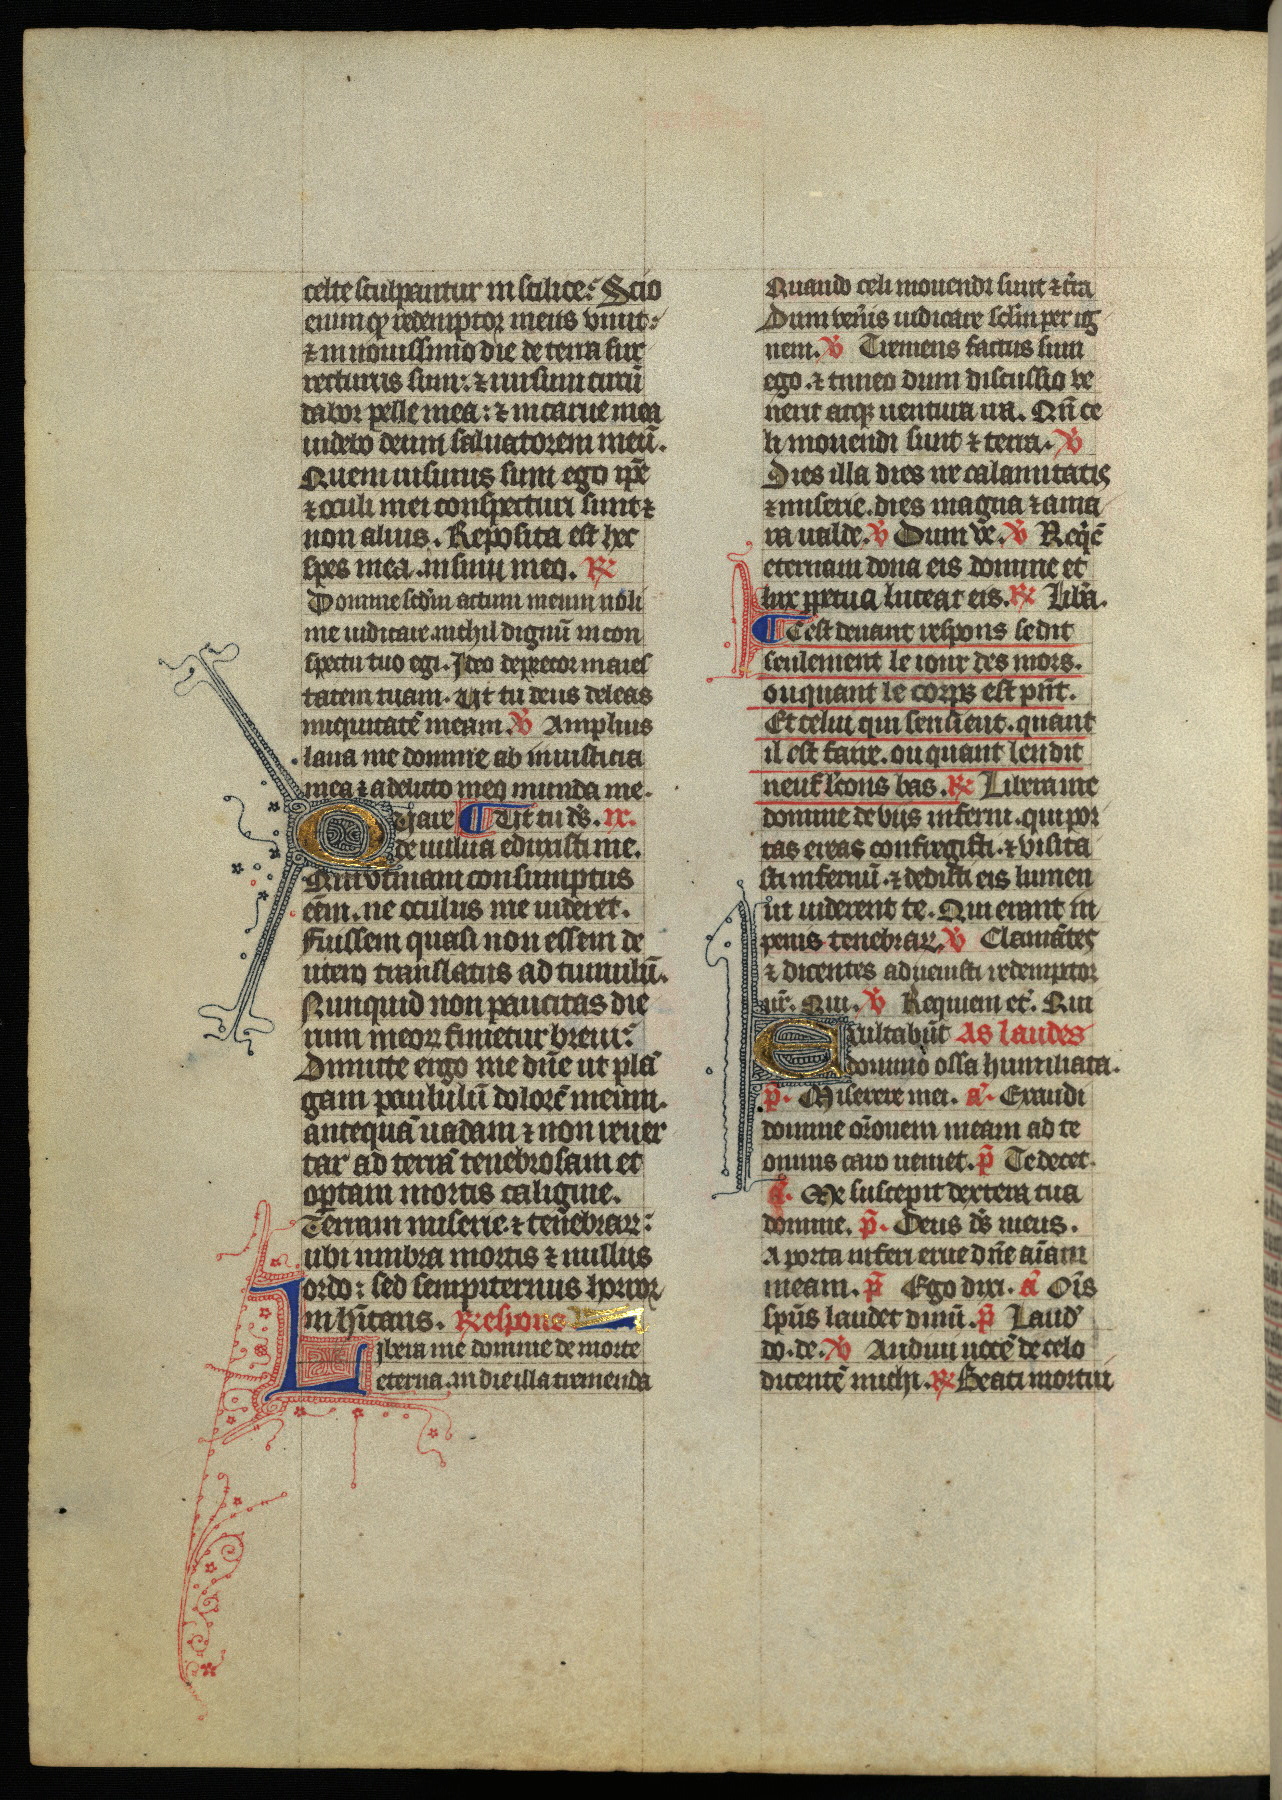 celte sculpantur in silice: Scio
enim qꝫ redemptor meus viuit:
⁊ in nouissimo die de terra sur
recturus sum: ⁊ rursum circū
dabor pelle mea: ⁊ in carne mea
uidebo deum saluatorem meū.
Quem uisurus sum ego ip̄e
⁊ oculi mei conspecturi sunt ⁊
non alius. Reposita est hec
spes mea in sinu meo. ℟
Domine scdm̄ actum meum noli
me iudicare. nichil dignū in con
spectu tuo egi. Ideo deprecor maies
tatem tuam. Ut tu deus deleas
iniquitatē meam. ℣ Amplius
laua me domine ab iniusticia
mea ⁊ a delicto meo munda me.
Quare Ut tu ds̄. ix.
de uulua eduxisti me.
Qui vtinam consumptus
eēm. ne oculus me uideret.
Fuissem quasi non essem de
utero translatus ad tumulū.
Nunquid non paucitas die
rum meoꝝ finietur breui:
Dimitte ergo me dn̄e ut plā
gam paululū dolorē meum.
antequā uadam ⁊ non reuer
tar ad terrā tenebrosam et
optam mortis caligine.
Terram miserie ⁊ tenebraꝝ:
ubi umbra mortis ⁊ nullus
ordo: sed sempiternus horror
inhītans. Respons
Libera me domine de morte
eterna. in die illa tremenda
Quando celi mouendi sunt ⁊ tr̄a
Dum ven̄is iudicare sclm̄ per ig
nem. ℣ Tremens factus sum
ego. ⁊ timeo dum discussio ve
nerit atqꝫ uentura ira. Qn̄ ce
li mouendi sunt ⁊ terra. ℣
Dies illa dies ire calamitatis
⁊ miserie. dies magna ⁊ ama
ra ualde. ℣ Dum vē. ℣ Req̄ē
eternam dona eis domine et
lux ꝑpetua luceat eis. ℟ Libā.
Cest deuant respons se dit
seulement le iour des mors.
ou quant le corps est pn̄t.
Et celui qui sensieut. quant
il est faire. ou quant len dit
neuf lc̄ons bas. ℟ Libera me
domine de viis inferni. qui por
tas ereas confregisti. ⁊ visita
sti infernū. ⁊ dedisti eis lumen
ut uiderent te. Qui erant in
penis tenebraꝝ. ℣ Clamātes
⁊ dicentes aduenisti redemptor
nr̄. Qui. ℣ Requiem etc̄. Qui
Exultabūt As laudes
domino ossa humiliata.
p̄. Miserere mei. a. Exaudi
domine or̄onem meam ad te
omnis caro ueniet. p̄ Te decet.
a. Me suscepit dextera tua
domine. p̄. Deus ds̄ meus.
A porta inferi erue dn̄e aīam
meam. p̄ Ego dixi. a Oīs
spūs laudet dominū. p̄ Laud
do. de. ℣ Audiui uocē de celo
dicentē michi. ℟ Beati mortui